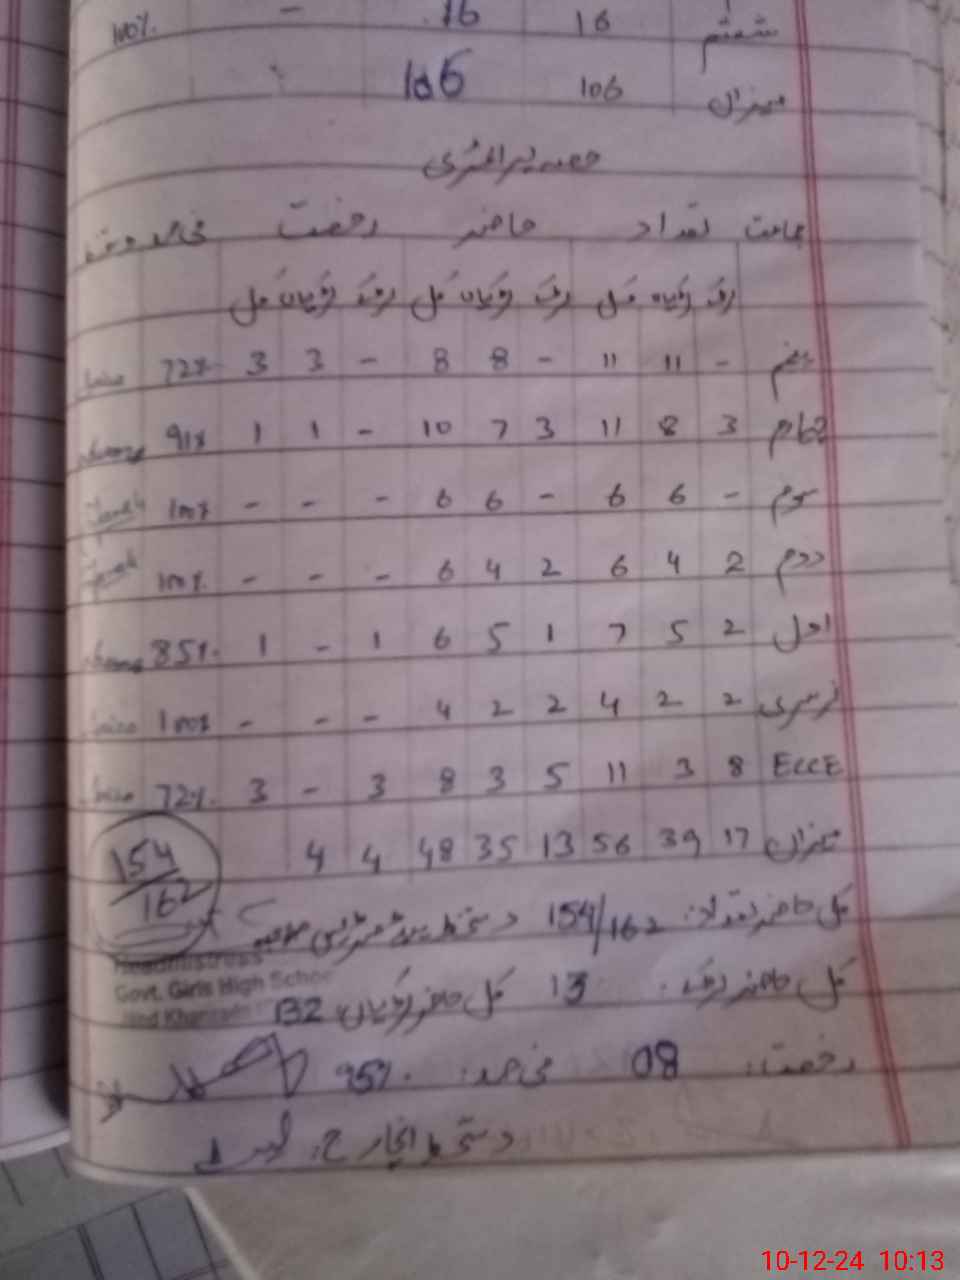 ششم 16 16 - 100%
میزان 106 106
حصہ پرائمری
جماعت تعداد حاضر رخصت فی صد دستخط
لڑکے لڑکیاں کل لڑکے لڑکیاں کل لڑکے لڑکیاں کل
پنجم - 11 11 - 8 8 - 3 3 72%
چہارم 3 8 11 3 7 10 - 1 1 91%
سوم - 6 6 - 6 6 - - - 100%
دوم 2 4 6 2 4 6 - - - 100%
اول 2 5 7 1 5 6 1 - 1 85%
نرسری 2 2 4 2 2 4 - - - 100%
ECCE 8 3 11 5 3 8 3 - 3 72%
میزان 17 39 56 13 35 48 4 4
154/162
کل حاضر تعداد: 154/162 دستخط ہیڈ مسٹریس صاحبہ
Headmistress
Govt. Girls High School
کل حاضر لڑکے: 13 کل حاضر لڑکیاں 132
رخصت: 08 فی صد: 95%
دستخط انچارج:
10-12-24 10:13